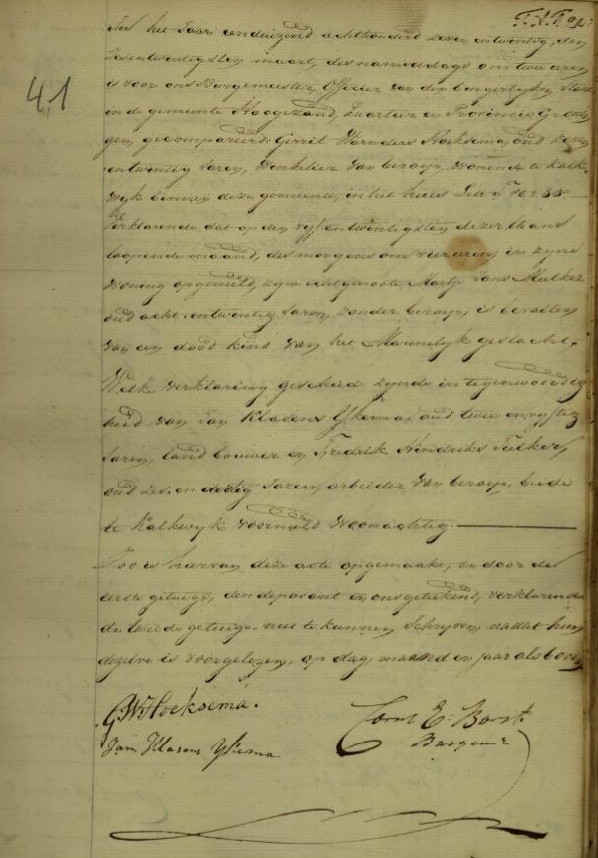 41
In het Jaar eenduizend achthonderd zeven en twintig, den
zesentwintigsten maart, des namiddags om twee uren
is voor ons Burgemeester, Officier van den burgerlyken Stand
in de gemeente Hoogezand, Kwartier en Provincie Gronin
gen, gecompareerd: Gerrit Warnders Hoeksema, oud zeven
entwintig Jaren, Winkelier van beroep, wonende te Kalk
wyk binnen deze gemeente, in het huis Letter F. No 38
Verklarende dat op den vyf en twintigsten dezer thans
loopende maand, des morgens om vier uren, in zyne
woning opgemeld, zyne echtgenoote Martje Jans Mulder
oud acht en twintig Jaren, zonder beroep, is bevallen
van een dood kind van het Mannelyk geslacht.
Welke verklaring geschied zynde in tegenwoordig
heid van Jan Klasens Ykema, oud twee en vyftig
Jaren, landbouwer en Fredrik Hindriks
oud zes en dertig Jaren, arbeider van beroep, beide
te Kalkwyk voormeld woonachtig.
Zoo is hiervan deze acte opgemaakt, en door de
eerste getuige, den deposant en ons getekend, verklarende
de tweede getuige, niet te kunnen Schryven, nadat hun
dezelve is voorgelezen, op dag, maand en jaar als boven
G W Hoeksema.
Corns E: Borst.
Jan Klasens Ykema
Burgemr